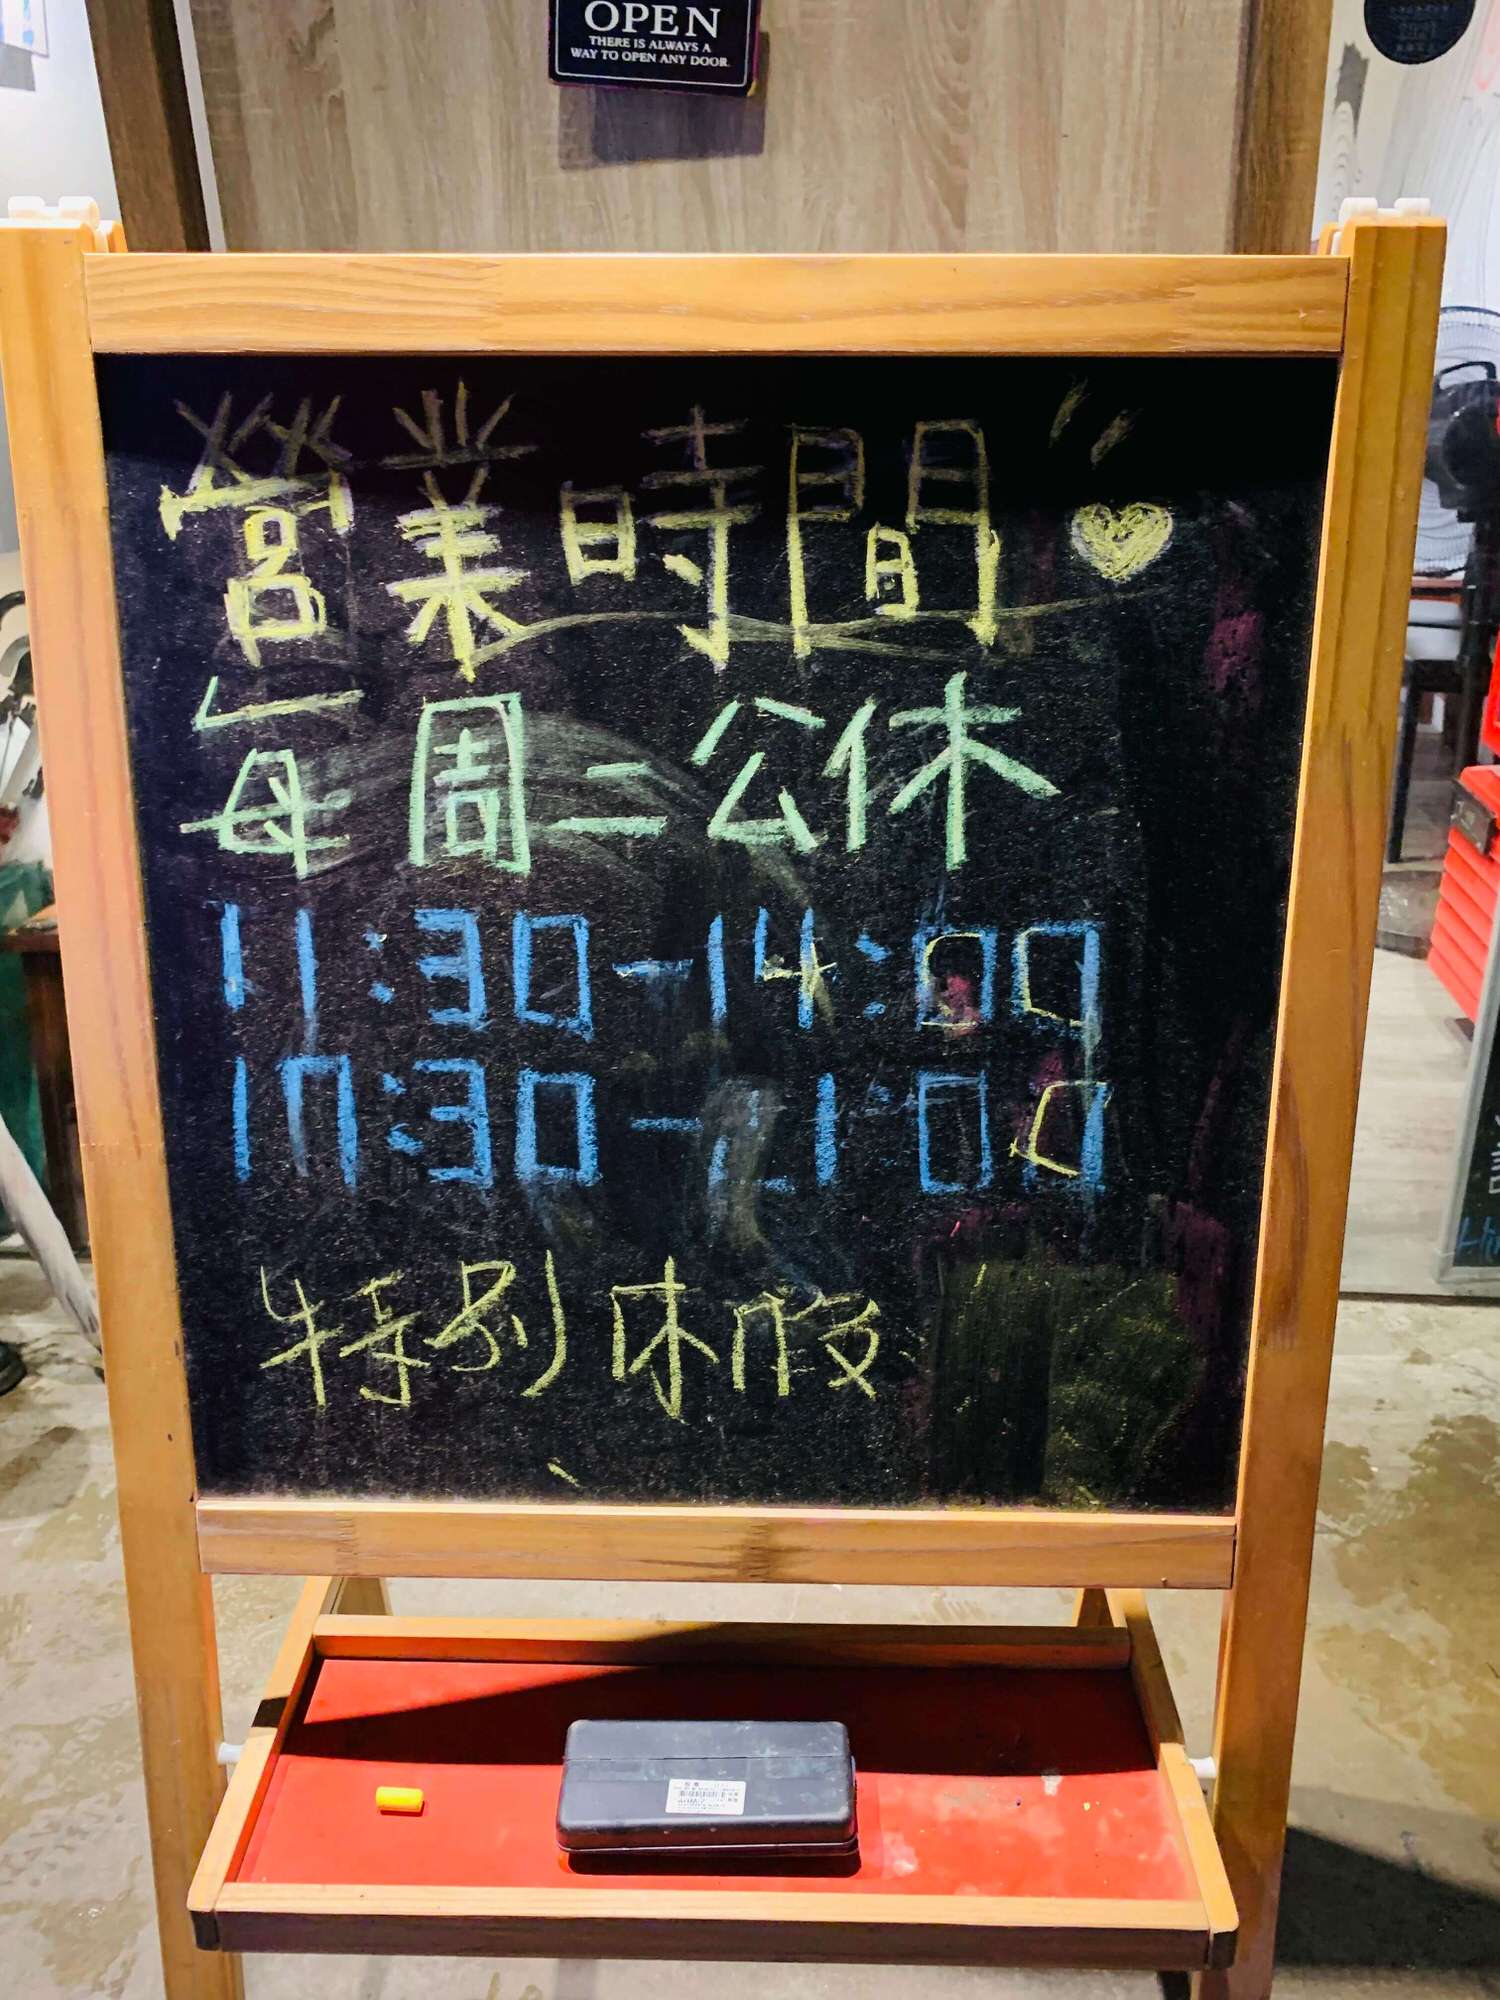 OPEN
THERE IS ALWAYS A
WAY TO OPEN ANY DOOR.
營業時間
每周二公休
11:30-14:00
17:30-21:00
特別休假